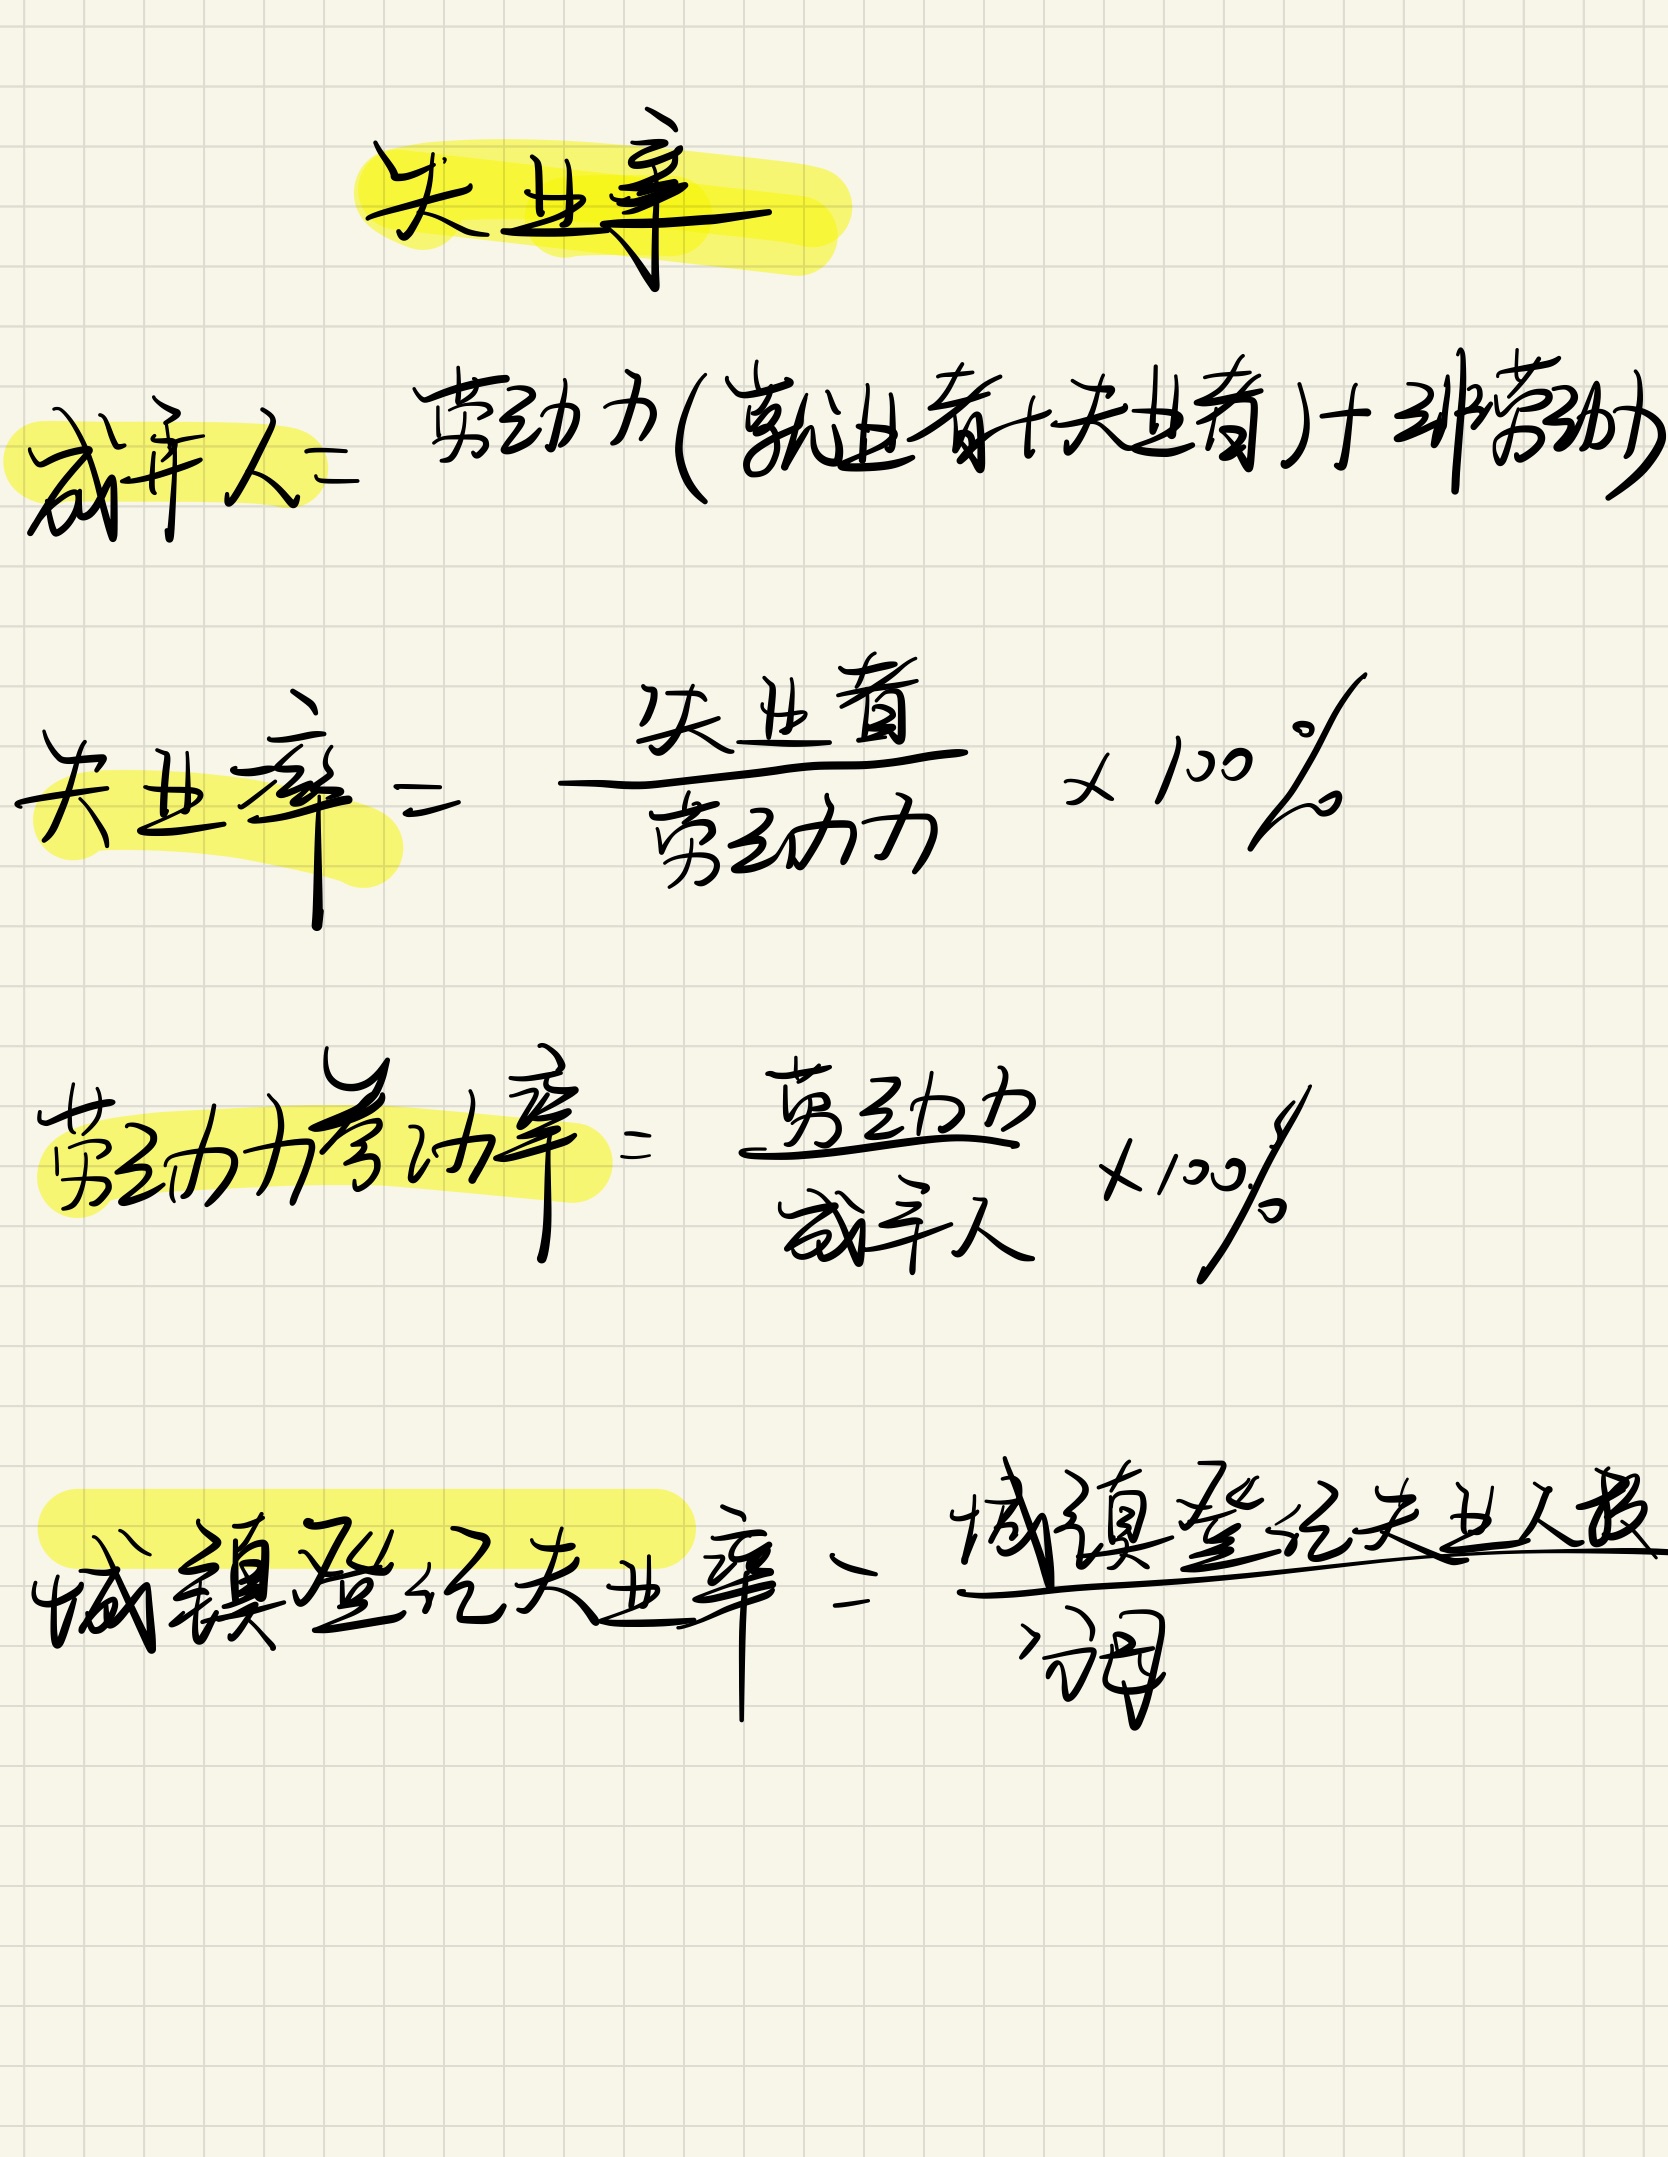 失业率
成年人= 劳动力(就业者+失业者)+非劳动力
失业率= 失业者/劳动力 ×100%
劳动力参动率= 劳动力/成年人 ×100%
城镇登记失业率= 城镇登记失业人数/分母